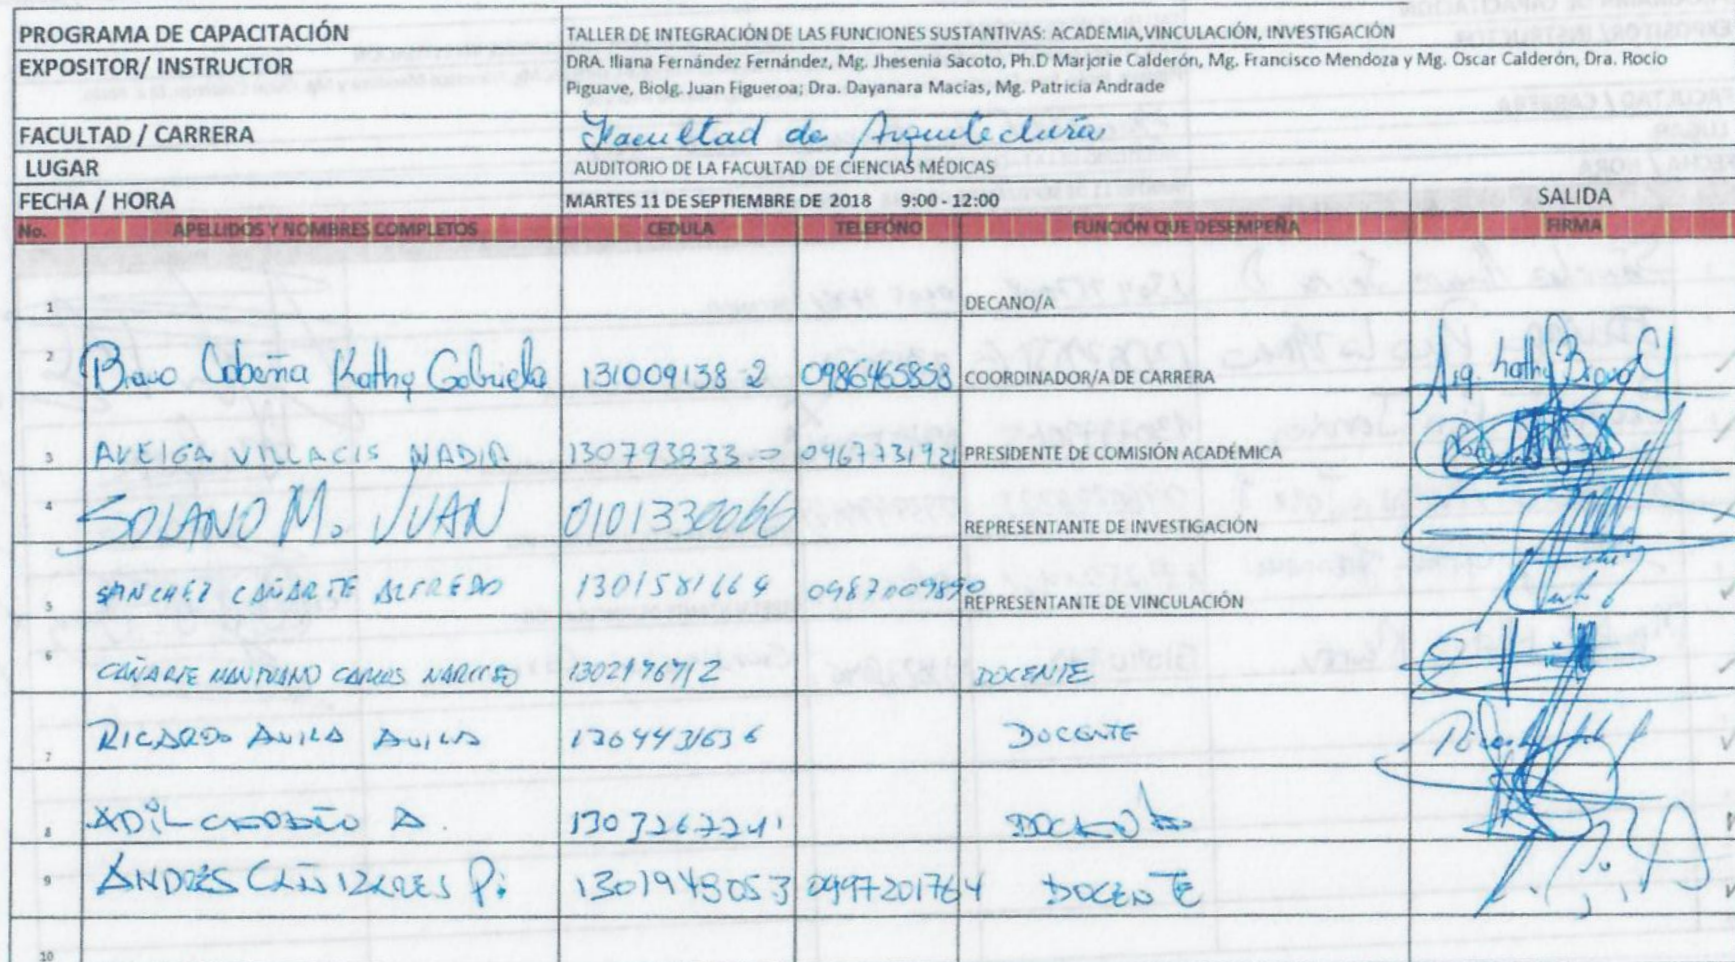 PROGRAMA DE CAPACITACIÓN TALLER DE INTEGRACIÓN DE LAS FUNCIONES SUSTANTIVAS: ACADEMIA, VINCULACIÓN, INVESTIGACIÓN
EXPOSITOR/ INSTRUCTOR DRA. Iliana Fernández Fernández, Mg. Jhesenia Sacoto, Ph.D Marjorie Calderón, Mg. Francisco Mendoza y Mg. Oscar Calderón, Dra. Rocío
Piguave, Biolg. Juan Figueroa; Dra. Dayanara Macías, Mg. Patricia Andrade
FACULTAD / CARRERA Facultad de Arquitectura
LUGAR AUDITORIO DE LA FACULTAD DE CIENCIAS MÉDICAS
FECHA / HORA MARTES 11 DE SEPTIEMBRE DE 2018 9:00 - 12:00 SALIDA
No. APELLIDOS Y NOMBRES COMPLETOS CEDULA TELEFÓNO FUNCIÓN QUE DESEMPEÑA FIRMA
1 DECANO/A
2 Bravo Cobeña Kathy Gabriela 131009138-2 0986465858 COORDINADOR/A DE CARRERA Arq. Kathy Bravo C
3 AVEIGA VILLACIS NADIA 130793833-0 0967731921 PRESIDENTE DE COMISIÓN ACADÉMICA
4 SOLANO M. JUAN 0101330066 REPRESENTANTE DE INVESTIGACIÓN
5 SANCHEZ CAÑARTE ALFREDO 1301581664 0987009890 REPRESENTANTE DE VINCULACIÓN
6 CAÑARTE MANTUANO CARLOS NARCISO 1302976712 DOCENTE
7 RICARDO AVILA AVILA 1304431636 DOCENTE
8 ADIL CEDEÑO A. 1303267241 DOCENTE
9 ANDRES CAÑIZARES P. 1301948053 0997201764 DOCENTE
10